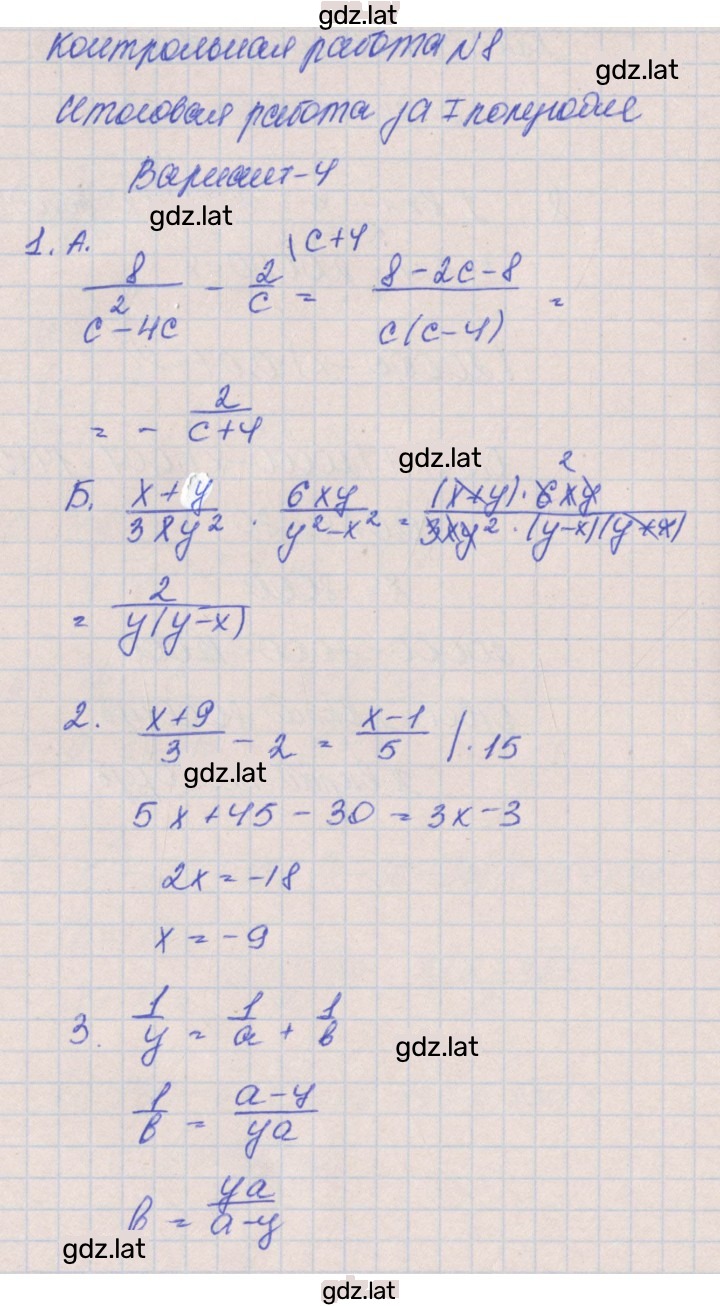 gdz.lat
Контрольная работа №8
gdz.lat
Итоговая работа за I полугодие
Вариант-4
gdz.lat
1. А. 8/(c²-4c) - 2/c |c+4 = (8-2c-8)/(c(c-4)) =
= - 2/(c+4)
gdz.lat
Б. (x+y)/(3xy²) · 6xy/(y²-x²) = ((x+y)·6xy 2)/(3xy²·(y-x)(y+x))
= 2/(y(y-x))
2. (x+9)/3 - 2 = (x-1)/5 |·15
gdz.lat
5x+45-30=3x-3
2x=-18
x=-9
3. 1/y = 1/a + 1/в
gdz.lat
1/в = (a-y)/(ya)
в = ya/(a-y)
gdz.lat
gdz.lat